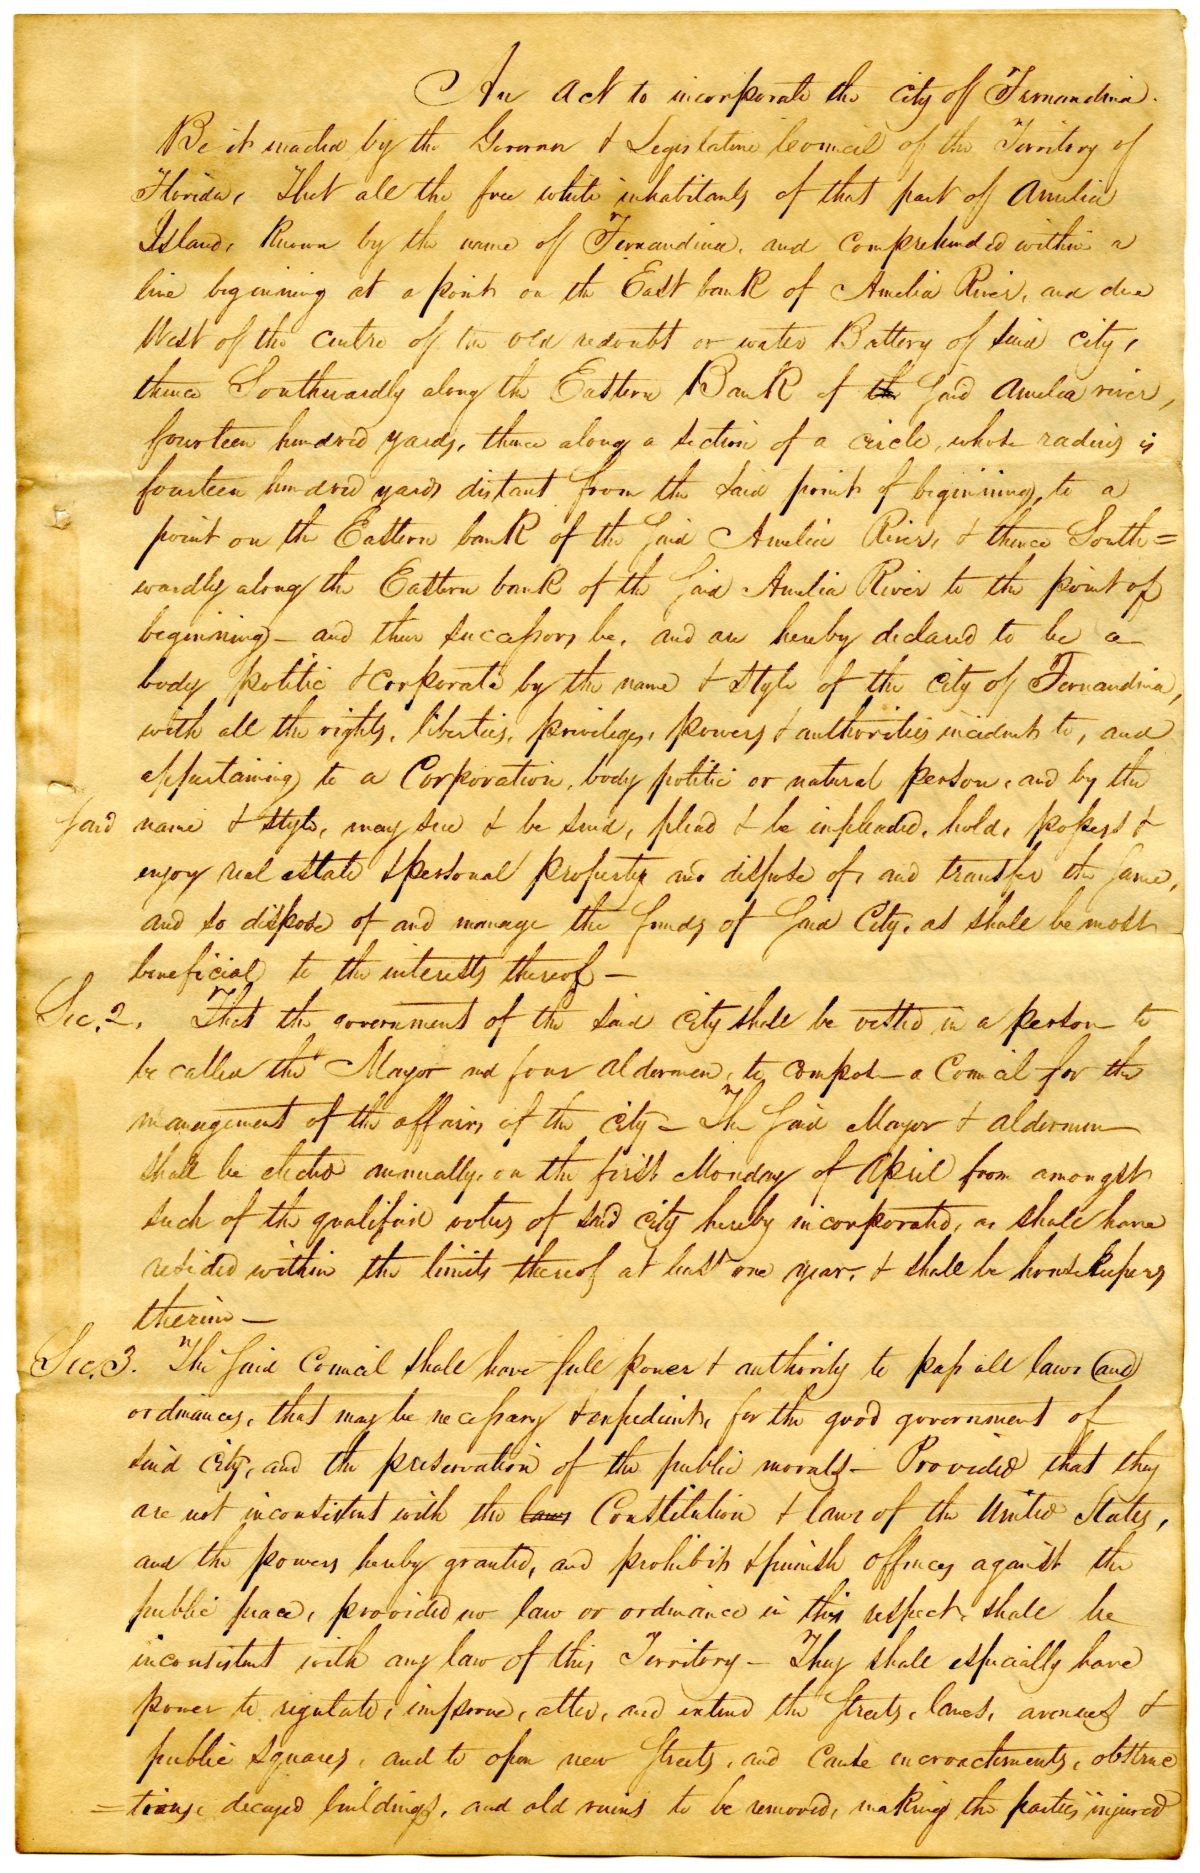 An Act to incorporate the City of Fernandina.
Be it enacted by the Governor & Legislative Council of the Territory of
Florida, That all the free white inhabitants of that part of Amelia
Island, Known by the name of Fernandina, and comprehended within a
line beginning at a point on the East bank of Amelia River, and due
West of the Centre of the old redoubt or water Battery of said city,
thence Southwardly along the Eastern Bank of the Said Amelia river,
fourteen hundred yards, thence along a section of a circle, whose radius is
fourteen hundred yards distant from the said point of beginning, to a
point on the Eastern bank of the Said Amelia River, & thence South=
wardly along the Eastern bank of the Said Amelia River to the point of
beginning – and their successors be, and are hereby declared to be a
body politic & Corporate by the name & style of the City of Fernandina,
with all the rights, liberties, privileges, powers & authorities incident to, and
appertaining to a Corporation, body politic or natural person, and by the
Said name & style, may sue & be sued, plead & be impleaded, hold, possess &
enjoy real estate & personal property and dispose of, and transfer the Same,
and so dispose of and manage the funds of Said City, as shall be most
beneficial to the interests thereof –
Sec. 2. That the government of the said City shall be vested in a person to
be called the Mayor and four aldermen, to compose a Council for the
management of the affairs of the city – The Said Mayor & aldermen
shall be elected annually, on the first Monday of April from amongst
such of the qualified voters of said city hereby incorporated, as shall have
resided within the limits thereof at least one year, & shall be housekeepers
therein –
Sec. 3. The Said Council shall have full power & authority to pass all laws and
ordinances, that may be necessary & expedient, for the good government of
said city, and the preservation of the public morals – Provided that they
are not inconsistent with the laws Constitution & laws of the United States,
and the powers hereby granted, and prohibit & punish offences against the
public peace, provided no law or ordinance in this respect, shall be
inconsistent with any law of this Territory – They shall especially have
power to regulate, improve, alter, and extend the Streets, lanes, avenues &
public squares, and to open new Streets, and Cause encroachments, obstruc
=tions, decayed buildings, and old ruins to be removed, making the parties injured